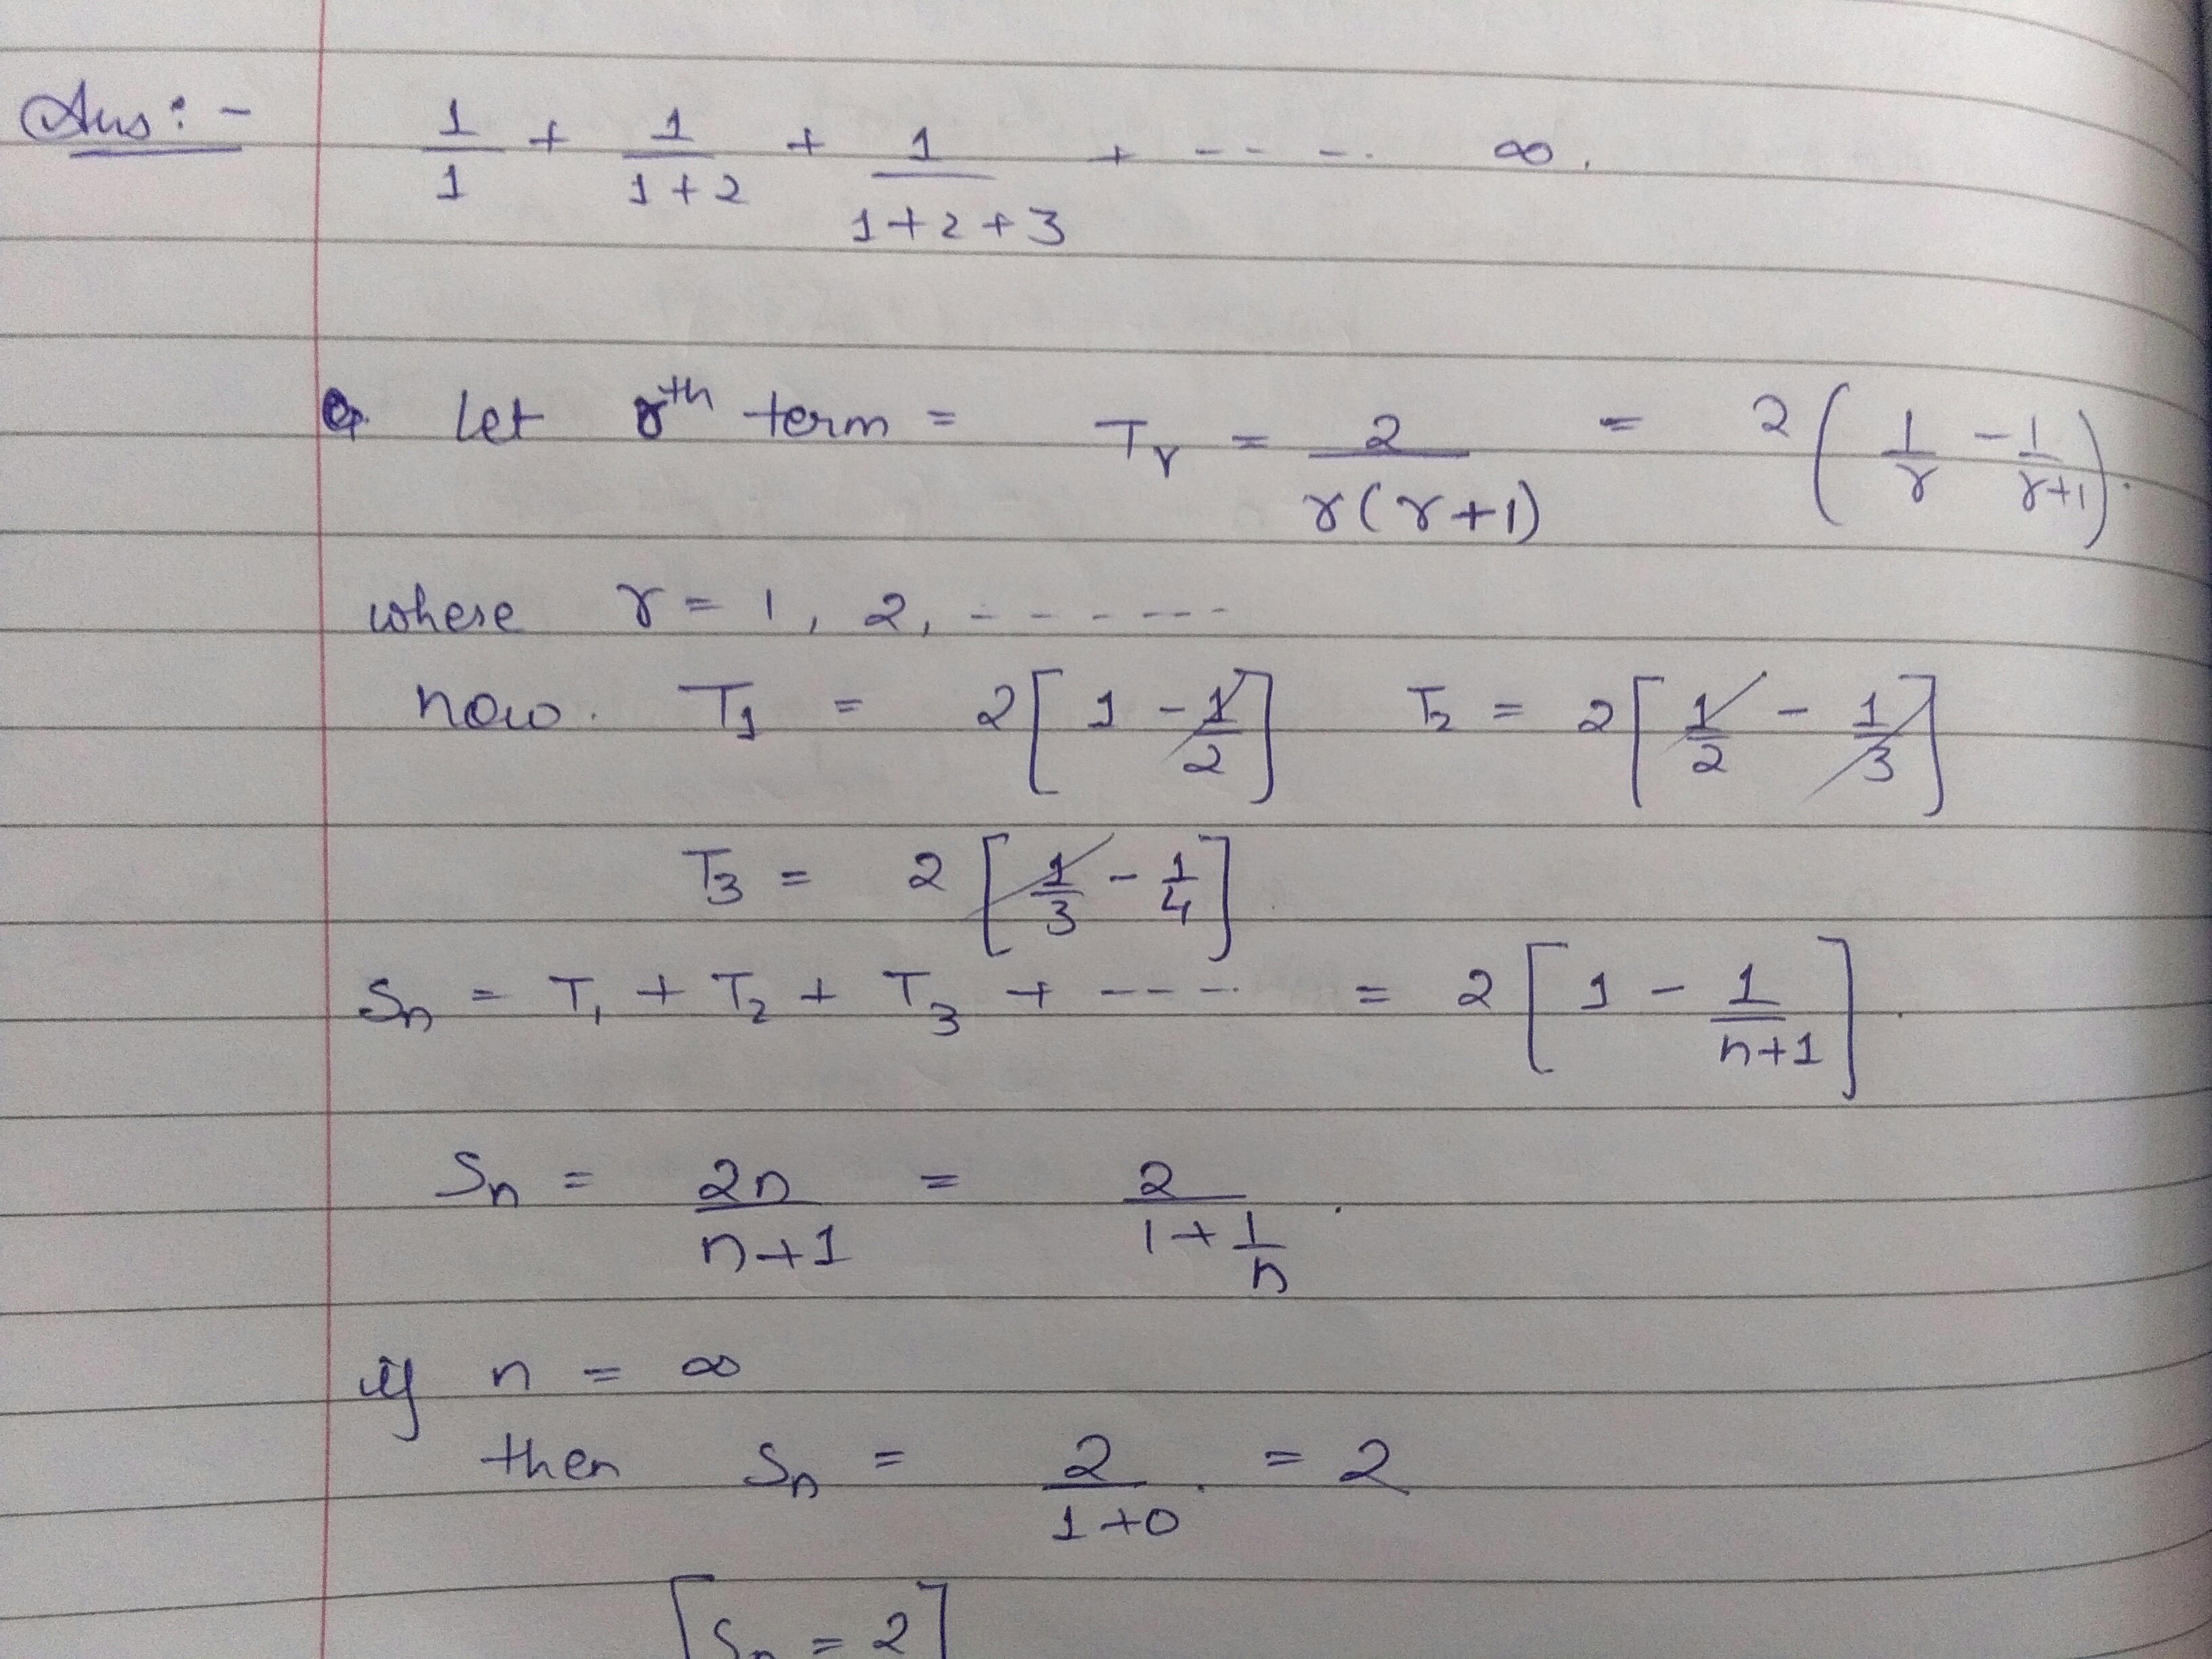 Ans:- 1/1 + 1/(1+2) + 1/(1+2+3) + ---- ∞.
Let rth term = Tr = 2/(r(r+1)) = 2(1/r - 1/(r+1)).
where r = 1, 2, ------
now. T1 = 2[1 - 1/2] T2 = 2[1/2 - 1/3]
T3 = 2[1/3 - 1/4]
Sn = T1 + T2 + T3 + ---- = 2[1 - 1/(n+1)].
Sn = 2n/(n+1) = 2/(1+1/n).
if n = ∞
then Sn = 2/(1+0). = 2
[Sn = 2]